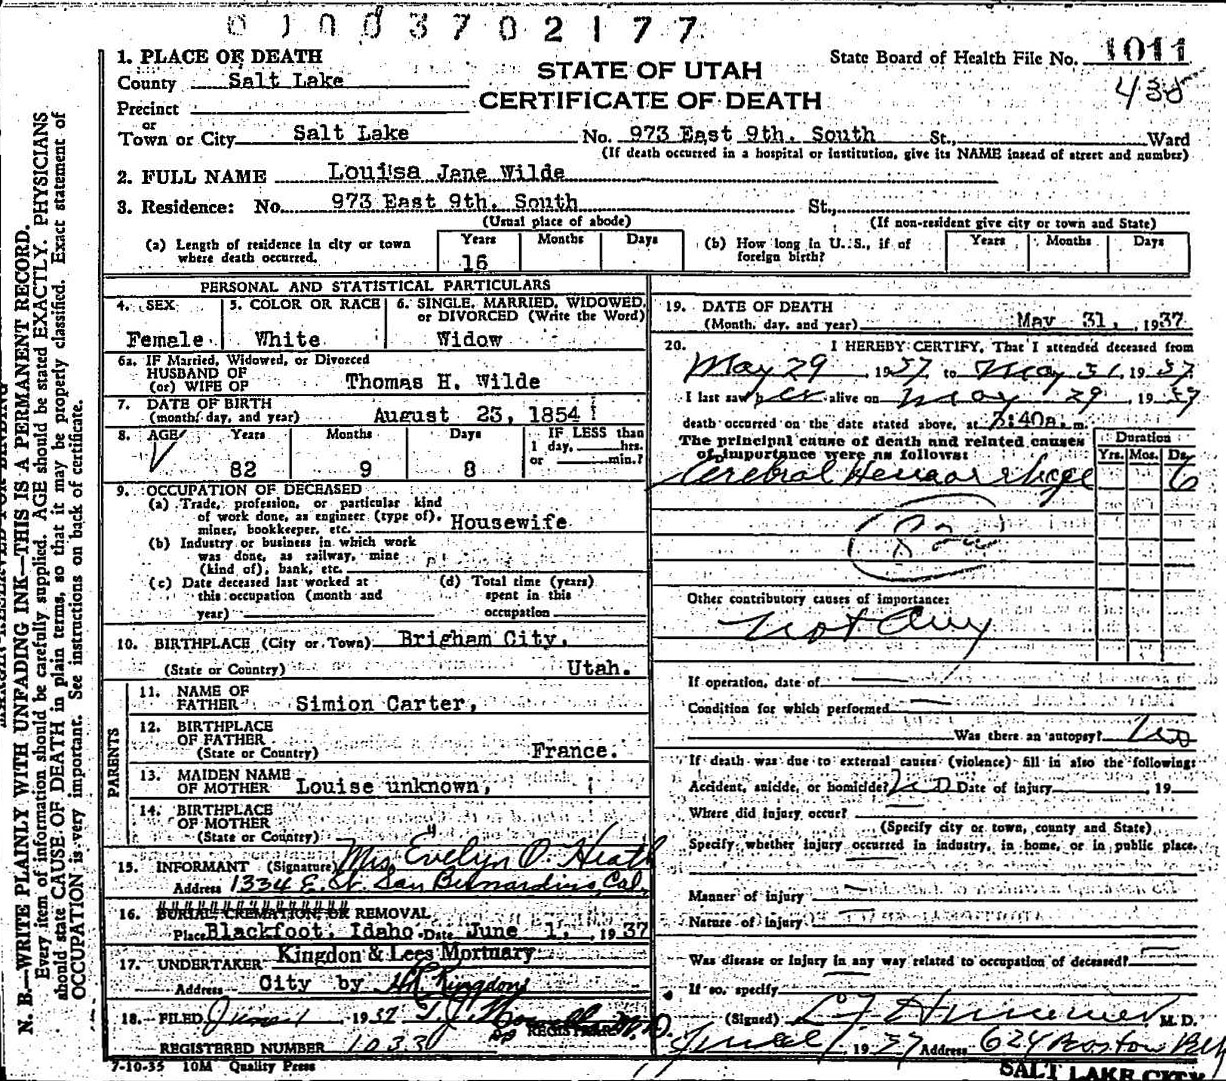 0100370 2177
1. PLACE OF DEATH
County Salt Lake
State Board of Health File No. 1011
438
STATE OF UTAH
CERTIFICATE OF DEATH
Precinct
or
Town or City Salt Lake No. 973 East 9th. South St., Ward
(If death occurred in a hospital or institution, give its NAME instead of street and number)
2. FULL NAME Louisa Jane Wilde
3. Residence: No. 973 East 9th. South St.,
(Usual place of abode) (If non-resident give city or town and State)
(a) Length of residence in city or town where death occurred. Years 16 Months Days
(b) How long in U. S., if of foreign birth? Years Months Days
PERSONAL AND STATISTICAL PARTICULARS
4. SEX Female
5. COLOR OR RACE White
6. SINGLE, MARRIED, WIDOWED, or DIVORCED (Write the Word) Widow
6a. IF Married, Widowed, or Divorced
HUSBAND OF
(or) WIFE OF Thomas H. Wilde
7. DATE OF BIRTH
(month, day, and year) August 23, 1854
8. AGE Years 82 Months 9 Days 8
IF LESS than
1 day, hrs.
or min.?
9. OCCUPATION OF DECEASED
(a) Trade, profession, or particular kind
of work done, as engineer (type of),
miner, bookkeeper, etc. Housewife
(b) Industry or business in which work
was done, as railway, mine
(kind of), bank, etc.
(c) Date deceased last worked at
this occupation (month and
year)
(d) Total time (years)
spent in this
occupation
10. BIRTHPLACE (City or Town) Brigham City,
(State or Country) Utah.
PARENTS
11. NAME OF
FATHER Simion Carter,
12. BIRTHPLACE
OF FATHER
(State or Country) France.
13. MAIDEN NAME
OF MOTHER Louise unknown,
14. BIRTHPLACE
OF MOTHER
(State or Country)
15. INFORMANT (Signature) Mrs Evelyn O. Heath
Address 1334 E. St. San Bernardino, Cal.
16. BURIAL, CREMATION, OR REMOVAL
Place Blackfoot, Idaho Date June 1, 1937
17. UNDERTAKER Kingdon & Lees Mortuary
Address City by Kingdon
18. FILED June 1 1937 REGISTRAR M.D.
REGISTERED NUMBER 1033
7-10-35 10M Quality Press
19. DATE OF DEATH
(Month, day, and year) May 31, 1937
20. I HEREBY CERTIFY, That I attended deceased from
May 29, 1937 to May 31, 1937
I last saw her alive on May 29, 1937
death occurred on the date stated above, at :40a. m.
The principal cause of death and related causes
of importance were as follows:
Duration
Yrs. Mos. Ds.
Cerebral Hemorrhage 6
82a
Other contributory causes of importance:
Not Any
If operation, date of
Condition for which performed
Was there an autopsy? No
If death was due to external causes (violence) fill in also the following:
Accident, suicide, or homicide? No Date of injury 19
Where did injury occur?
(Specify city or town, county and State)
Specify whether injury occurred in industry, in home, or in public place.
Manner of injury
Nature of injury
Was disease or injury in any way related to occupation of deceased?
If so, specify
(Signed) M. D.
June 1 1937 Address 624 Boston Bldg
SALT LAKE CITY
N. B.—WRITE PLAINLY WITH UNFADING INK—THIS IS A PERMANENT RECORD.
Every item of information should be carefully supplied. AGE should be stated EXACTLY. PHYSICIANS
should state CAUSE OF DEATH in plain terms, so that it may be properly classified. Exact statement of
OCCUPATION is very important. See instructions on back of certificate.